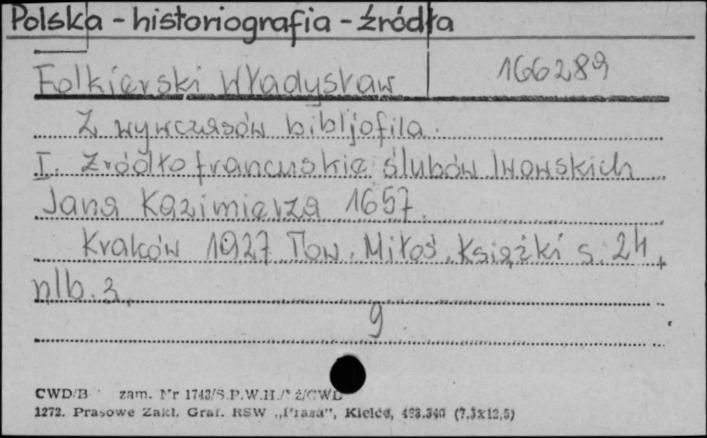 Polska - historiografia - źródła
Folkierski Władysław 166289
Z wywczasów bibljofila.
I. Źródło francuskie ślubów lwowskich
Jana Kazimierza 1657.
Kraków 1927 Tow. Miłoś. Książki s. 24,
nlb. 3.
g
CWD/B zam. Nr 1743/S.P.W.H.
1272. Prasowe Zakł. Graf. RSW „Prasa", Kielce, (7,5x12,5)